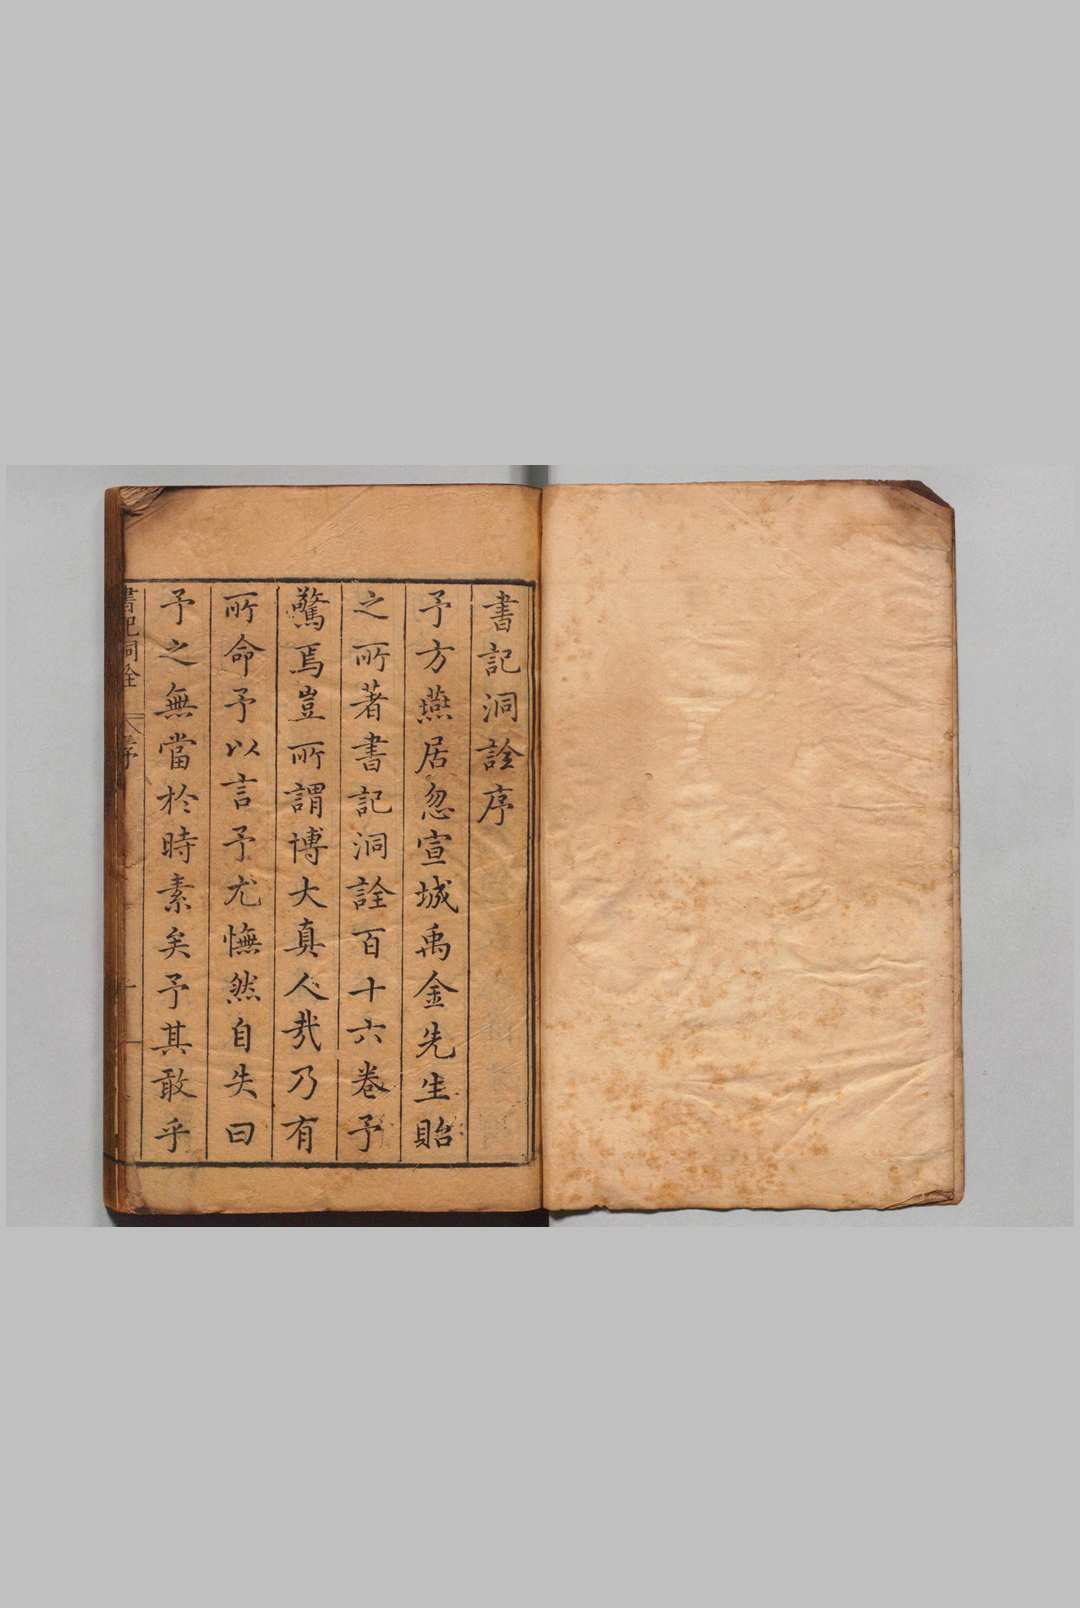 書記洞詮序
予方燕居忽宣城禹金先生貽
之所著書記洞詮百十六卷予
驚焉豈所謂博大真人㢤乃有
所命予以言予尤憮然自失曰
予之無當於時素矣予其敢乎
書記洞詮
序